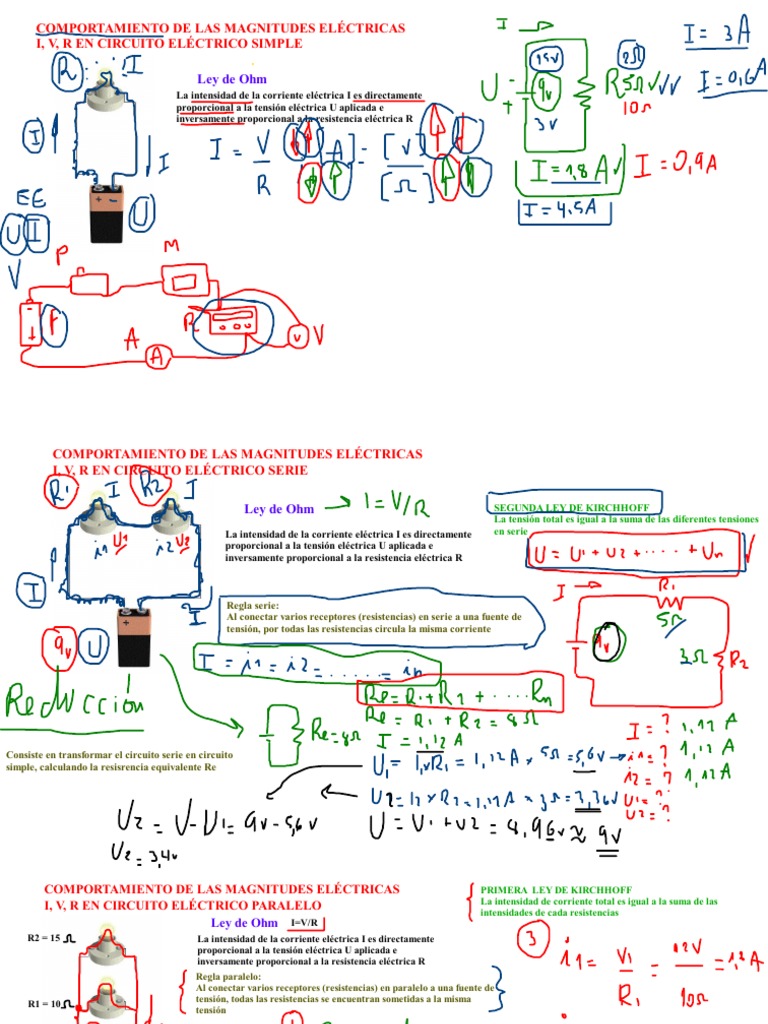 COMPORTAMIENTO DE LAS MAGNITUDES ELÉCTRICAS
I, V, R EN CIRCUITO ELÉCTRICO SIMPLE
R I
Ley de Ohm
La intensidad de la corriente eléctrica I es directamente
proporcional a la tensión eléctrica U aplicada e
inversamente proporcional a la resistencia eléctrica R
I = V/R [A] = [V]/[Ω]
I
I
U
EE
U I
V
I
15V 2Ω
U 9V R 5Ω
10Ω
3V
I = 3A
I = 0,6A
I = 1,8 A
I = 0,9A
I = 4.5A
P
M
F
R
A
A
V V
COMPORTAMIENTO DE LAS MAGNITUDES ELÉCTRICAS
I, V, R EN CIRCUITO ELÉCTRICO SERIE
R1 I R2 I
Ley de Ohm → I=V/R
La intensidad de la corriente eléctrica I es directamente
proporcional a la tensión eléctrica U aplicada e
inversamente proporcional a la resistencia eléctrica R
i1 U1 i2 U2
I
I
9v U
SEGUNDA LEY DE KIRCHHOFF
La tensión total es igual a la suma de las diferentes tensiones
en serie
U = U1 + U2 + ..... + Un
Regla serie:
Al conectar varios receptores (resistencias) en serie a una fuente de
tensión, por todas las resistencias circula la misma corriente
I = i1 = i2 = ...... = in
Re = R1 + R2 + ..... Rn
Re = R1 + R2 = 8Ω
I = 1,12 A
I
R1
5Ω
9v
3Ω R2
Reducción
Re=8Ω
Consiste en transformar el circuito serie en circuito
simple, calculando la resisrencia equivalente Re
U1 = I1xR1 = 1,12A x 5Ω = 5,6v
U2 = I2 x R2 = 1,12A x 3Ω = 3,36v
U = U1 + U2 = 8,96v ≈ 9v
I = ? 1,12 A
i1 = ? 1,12 A
i2 = ? 1,12A
U1 = ?
U2 = ?
U2 = U-U1 = 9v - 5,6v
U2 = 3,4v
COMPORTAMIENTO DE LAS MAGNITUDES ELÉCTRICAS
I, V, R EN CIRCUITO ELÉCTRICO PARALELO
PRIMERA LEY DE KIRCHHOFF
La intensidad de corriente total es igual a la suma de las
intensidades de cada resistencias
Ley de Ohm I=V/R
La intensidad de la corriente eléctrica I es directamente
proporcional a la tensión eléctrica U aplicada e
inversamente proporcional a la resistencia eléctrica R
R2 = 15 Ω
R1 = 10 Ω
Regla paralelo:
Al conectar varios receptores (resistencias) en paralelo a una fuente de
tensión, todas las resistencias se encuentran sometidas a la misma
tensión
3
i1 = V1/R1 = 12V/10Ω = 1,2A